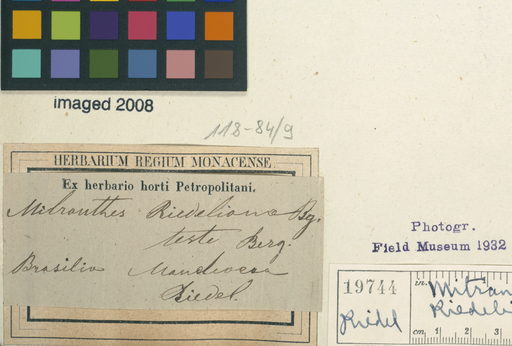 imaged 2008
118-84/9
HERBARIUM REGIUM MONACENSE
Ex herbario horti Petropolitani.
Mitranthes Riedeliana Bg.
teste Berg.
Brasilia Mandiocca
Riedel.
Photogr.
Field Museum 1932
19744
in.
Mitran
Riedel
Riedeli
cm. 1 2 3